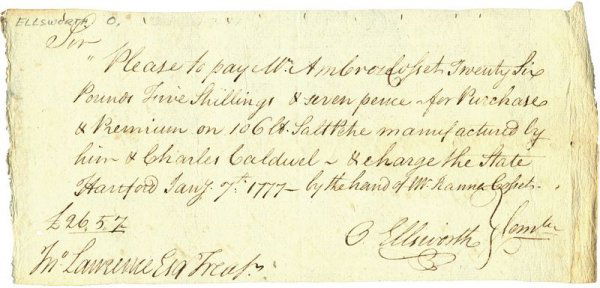 ELLSWORTH O.
Sir
"Please to pay Mr. Ambros Cosset Twenty Six
Pounds Five Shillings & seven pence - for Purchase
& Premium on 106 lt. Salt Petre manufactured by
him & Charles Caldwel - & charge the State
Hartford Jany. 7th. 1777 - by the hand of Mr. Ranna Cosset.
£26.5.7
O Ellsworth } Comtee
Jno Lawrence Esq Treasr.